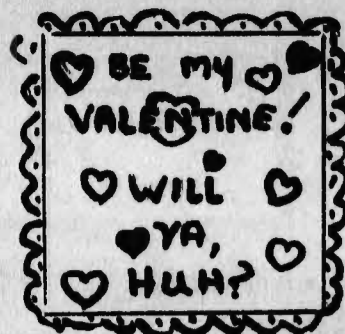 BE MY
VALENTINE!
WILL
YA,
HUH?